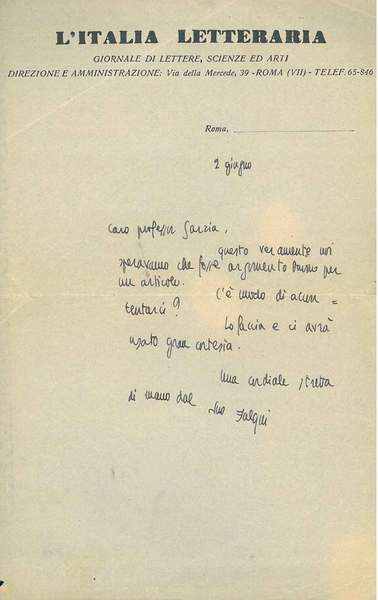 L'ITALIA LETTERARIA
GIORNALE DI LETTERE, SCIENZE ED ARTI
DIREZIONE E AMMINISTRAZIONE: Via della Mercede, 39 - ROMA (VII) - TELEF. 65-846
Roma,
2 giugno
Caro professor Garzia,
questo veramente noi
speravamo che fosse argomento buono per
un articolo. C'è modo di accon=
tentarci?
Lo faccia e ci avrà
usato gran cortesia.
Una cordiale stretta
di mano dal Suo Falqui